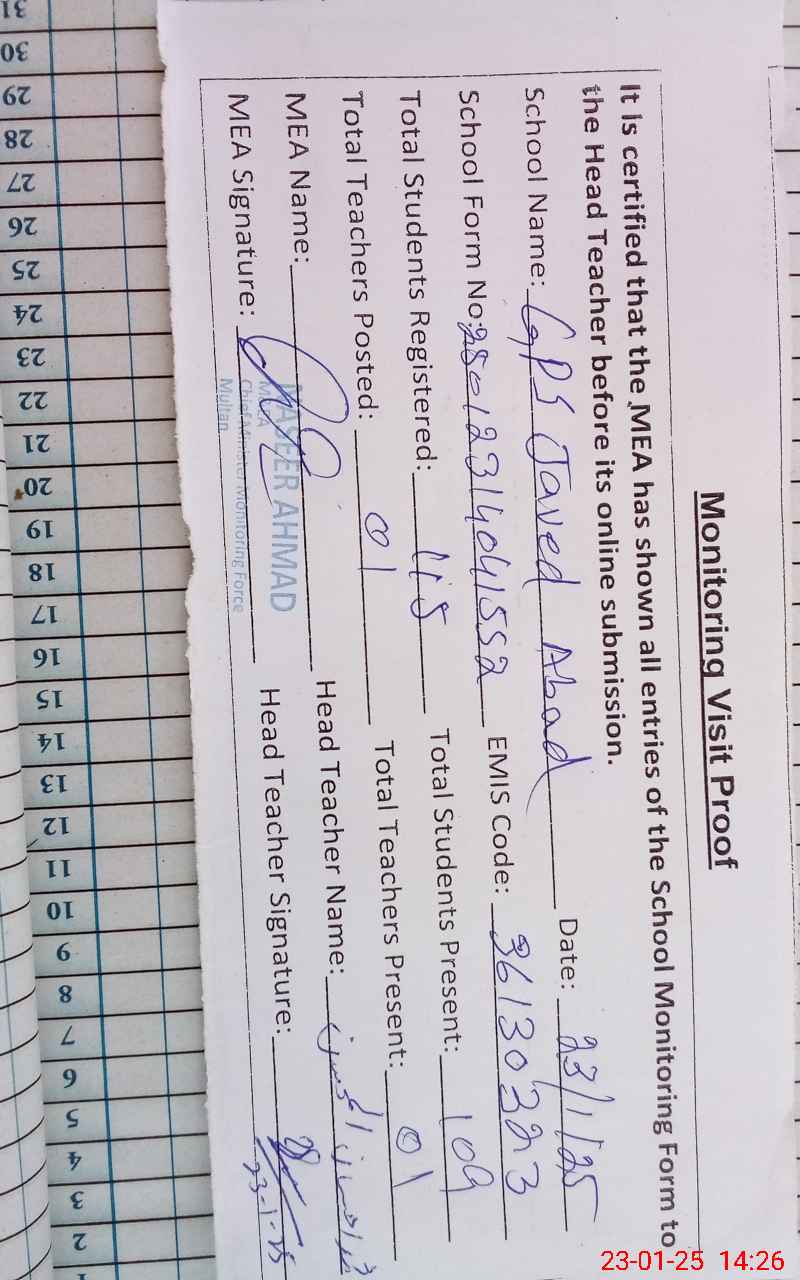 Monitoring Visit Proof
It is certified that the MEA has shown all entries of the School Monitoring Form to
the Head Teacher before its online submission.
School Name: GPS Javed Abad Date: 23/1/25
School Form No: 25012314041552 EMIS Code: 36130323
Total Students Registered: 115 Total Students Present: 109
Total Teachers Posted: 01 Total Teachers Present: 01
MEA Name: Head Teacher Name:
MEA Signature: Head Teacher Signature:
NASEER AHMAD
MEA
Chief Minister Monitoring Force
Multan
23-1-25
31
30
29
28
27
26
25
24
23
22
21
20
19
18
17
16
15
14
13
12
11
10
9
8
7
6
5
4
3
2
1
23-01-25 14:26